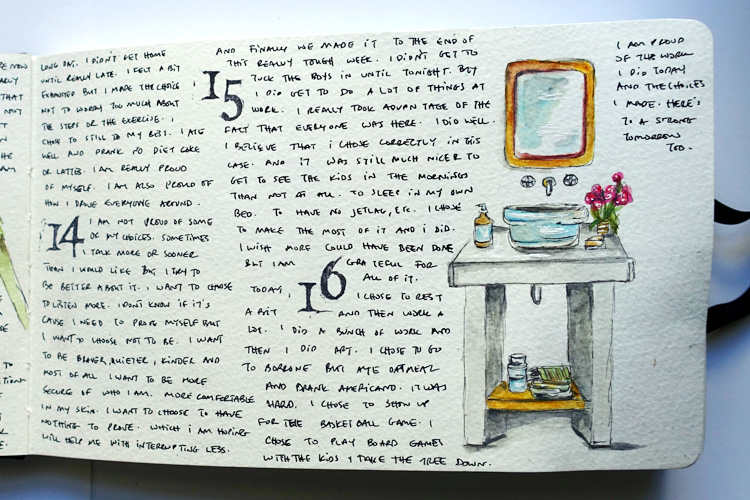 LONG DAY. I DIDN'T GET HOME
UNTIL REALLY LATE. I FELT A BIT
EXHAUSTED BUT I MADE THE CHOICE
NOT TO WORRY TOO MUCH ABOUT
THE STEPS OR THE EXERCISE. I
CHOSE TO STILL TO MY BEST. I ATE
WELL AND DRANK NO DIET COKE
OR LATTES. I AM REALLY PROUD
OF MYSELF. I AM ALSO PROUD OF
HOW I DROVE EVERYONE AROUND.
14 I AM NOT PROUD OF SOME
OF MY CHOICES. SOMETIMES
I TALK MORE OR SOONER
THAN I WOULD LIKE BUT I TRY TO
BE BETTER ABOUT IT. I WANT TO CHOOSE
TO LISTEN MORE. I DON'T KNOW IF IT'S
CAUSE I NEED TO PROVE MYSELF BUT
I WANT TO CHOOSE NOT TO BE. I WANT
TO BE BRAVER, QUIETER, KINDER AND
MOST OF ALL I WANT TO BE MORE
SECURE OF WHO I AM. MORE COMFORTABLE
IN MY SKIN. I WANT TO CHOOSE TO HAVE
NOTHING TO PROVE. WHICH I AM HOPING
WILL HELP ME WITH INTERRUPTING LESS.
AND FINALLY WE MADE IT TO THE END OF
THIS REALLY TOUGH WEEK. I DIDN'T GET TO
15 TUCK THE BOYS IN UNTIL TONIGHT. BUT
I DID GET TO DO A LOT OF THINGS AT
WORK. I REALLY TOOK ADVANTAGE OF THE
FACT THAT EVERYONE WAS HERE. I DID WELL.
I BELIEVE THAT I CHOSE CORRECTLY IN THIS
CASE. AND IT WAS STILL MUCH NICER TO
GET TO SEE THE KIDS IN THE MORNINGS
THAN NOT AT ALL. TO SLEEP IN MY OWN
BED. TO HAVE NO JETLAG, ETC. I CHOSE
TO MAKE THE MOST OF IT AND I DID.
I WISH MORE COULD HAVE BEEN DONE
BUT I AM GRATEFUL FOR
ALL OF IT.
TODAY, 16 I CHOSE TO REST
A BIT AND THEN WORK A
LOT. I DID A BUNCH OF WORK AND
THEN I DID ART. I CHOSE TO GO
TO BORRONE BUT ATE OATMEAL
AND DRANK AMERICANO. IT WAS
HARD. I CHOSE TO SHOW UP
FOR THE BASKETBALL GAME. I
CHOSE TO PLAY BOARD GAMES
WITH THE KIDS & TAKE THE TREE DOWN.
I AM PROUD
OF THE WORK
I DID TODAY
AND THE CHOICES
I MADE. HERE'S
TO A STRONG
TOMORROW
TOO.